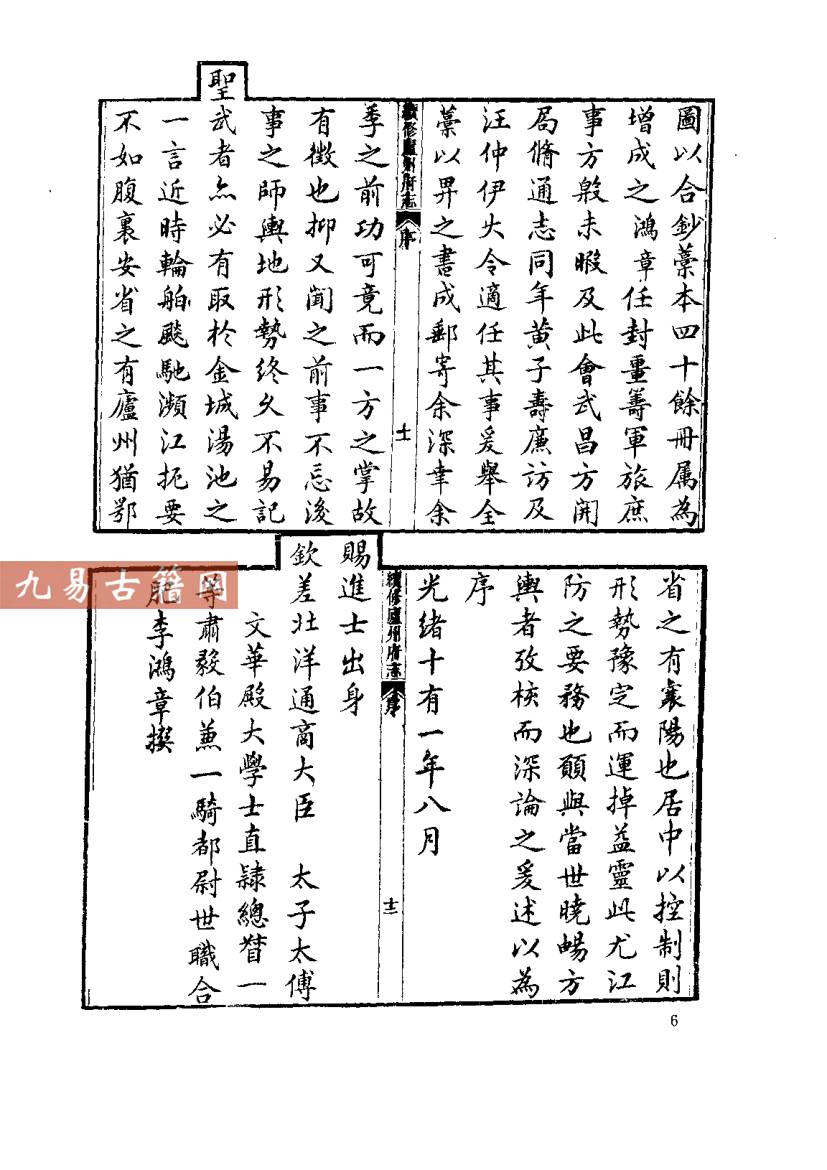 圖以合鈔藁本四十餘冊属為
增成之鴻章任封畺籌軍旅庶
事方殷未暇及此會武昌方開
局脩通志同年黄子壽廉訪及
汪仲伊大令適任其事爰舉全
藁以畀之書成郵寄余深幸余
續修廬州府志
序
十一
季之前功可竟而一方之掌故
有徵也抑又聞之前事不忘後
事之師輿地形勢終久不易記
聖武者亦必有取於金城湯池之
一言近時輪舶飈馳瀕江扼要
不如腹裏安省之有廬州猶鄂
省之有襄陽也居中以控制則
形勢豫定而運掉益靈此尤江
防之要務也願與當世曉暢方
輿者攷核而深論之爰述以為
序
光緒十有一年八月
續修廬州府志
序
十二
賜進士出身
欽差北洋通商大臣 太子太傅
文華殿大學士直隸總督一
等肅毅伯兼一騎都尉世職合
肥李鴻章撰
九易古籍网
6